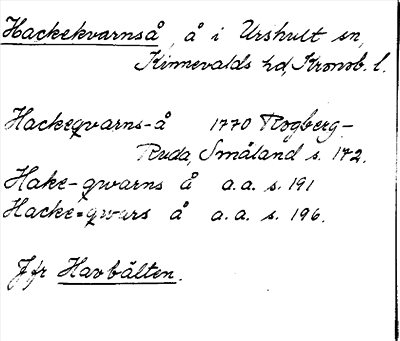 Hackekvarnså, å i Urshult sn,
Kinnevalds hd, Kronob. l.
Hackeqvarns-å 1770 Rogberg-
Ruda, Småland s. 172.
Hake-qwarns å a.a. s. 191
Hacke-qwars å a.a. s. 196.
Jfr Havbälten.